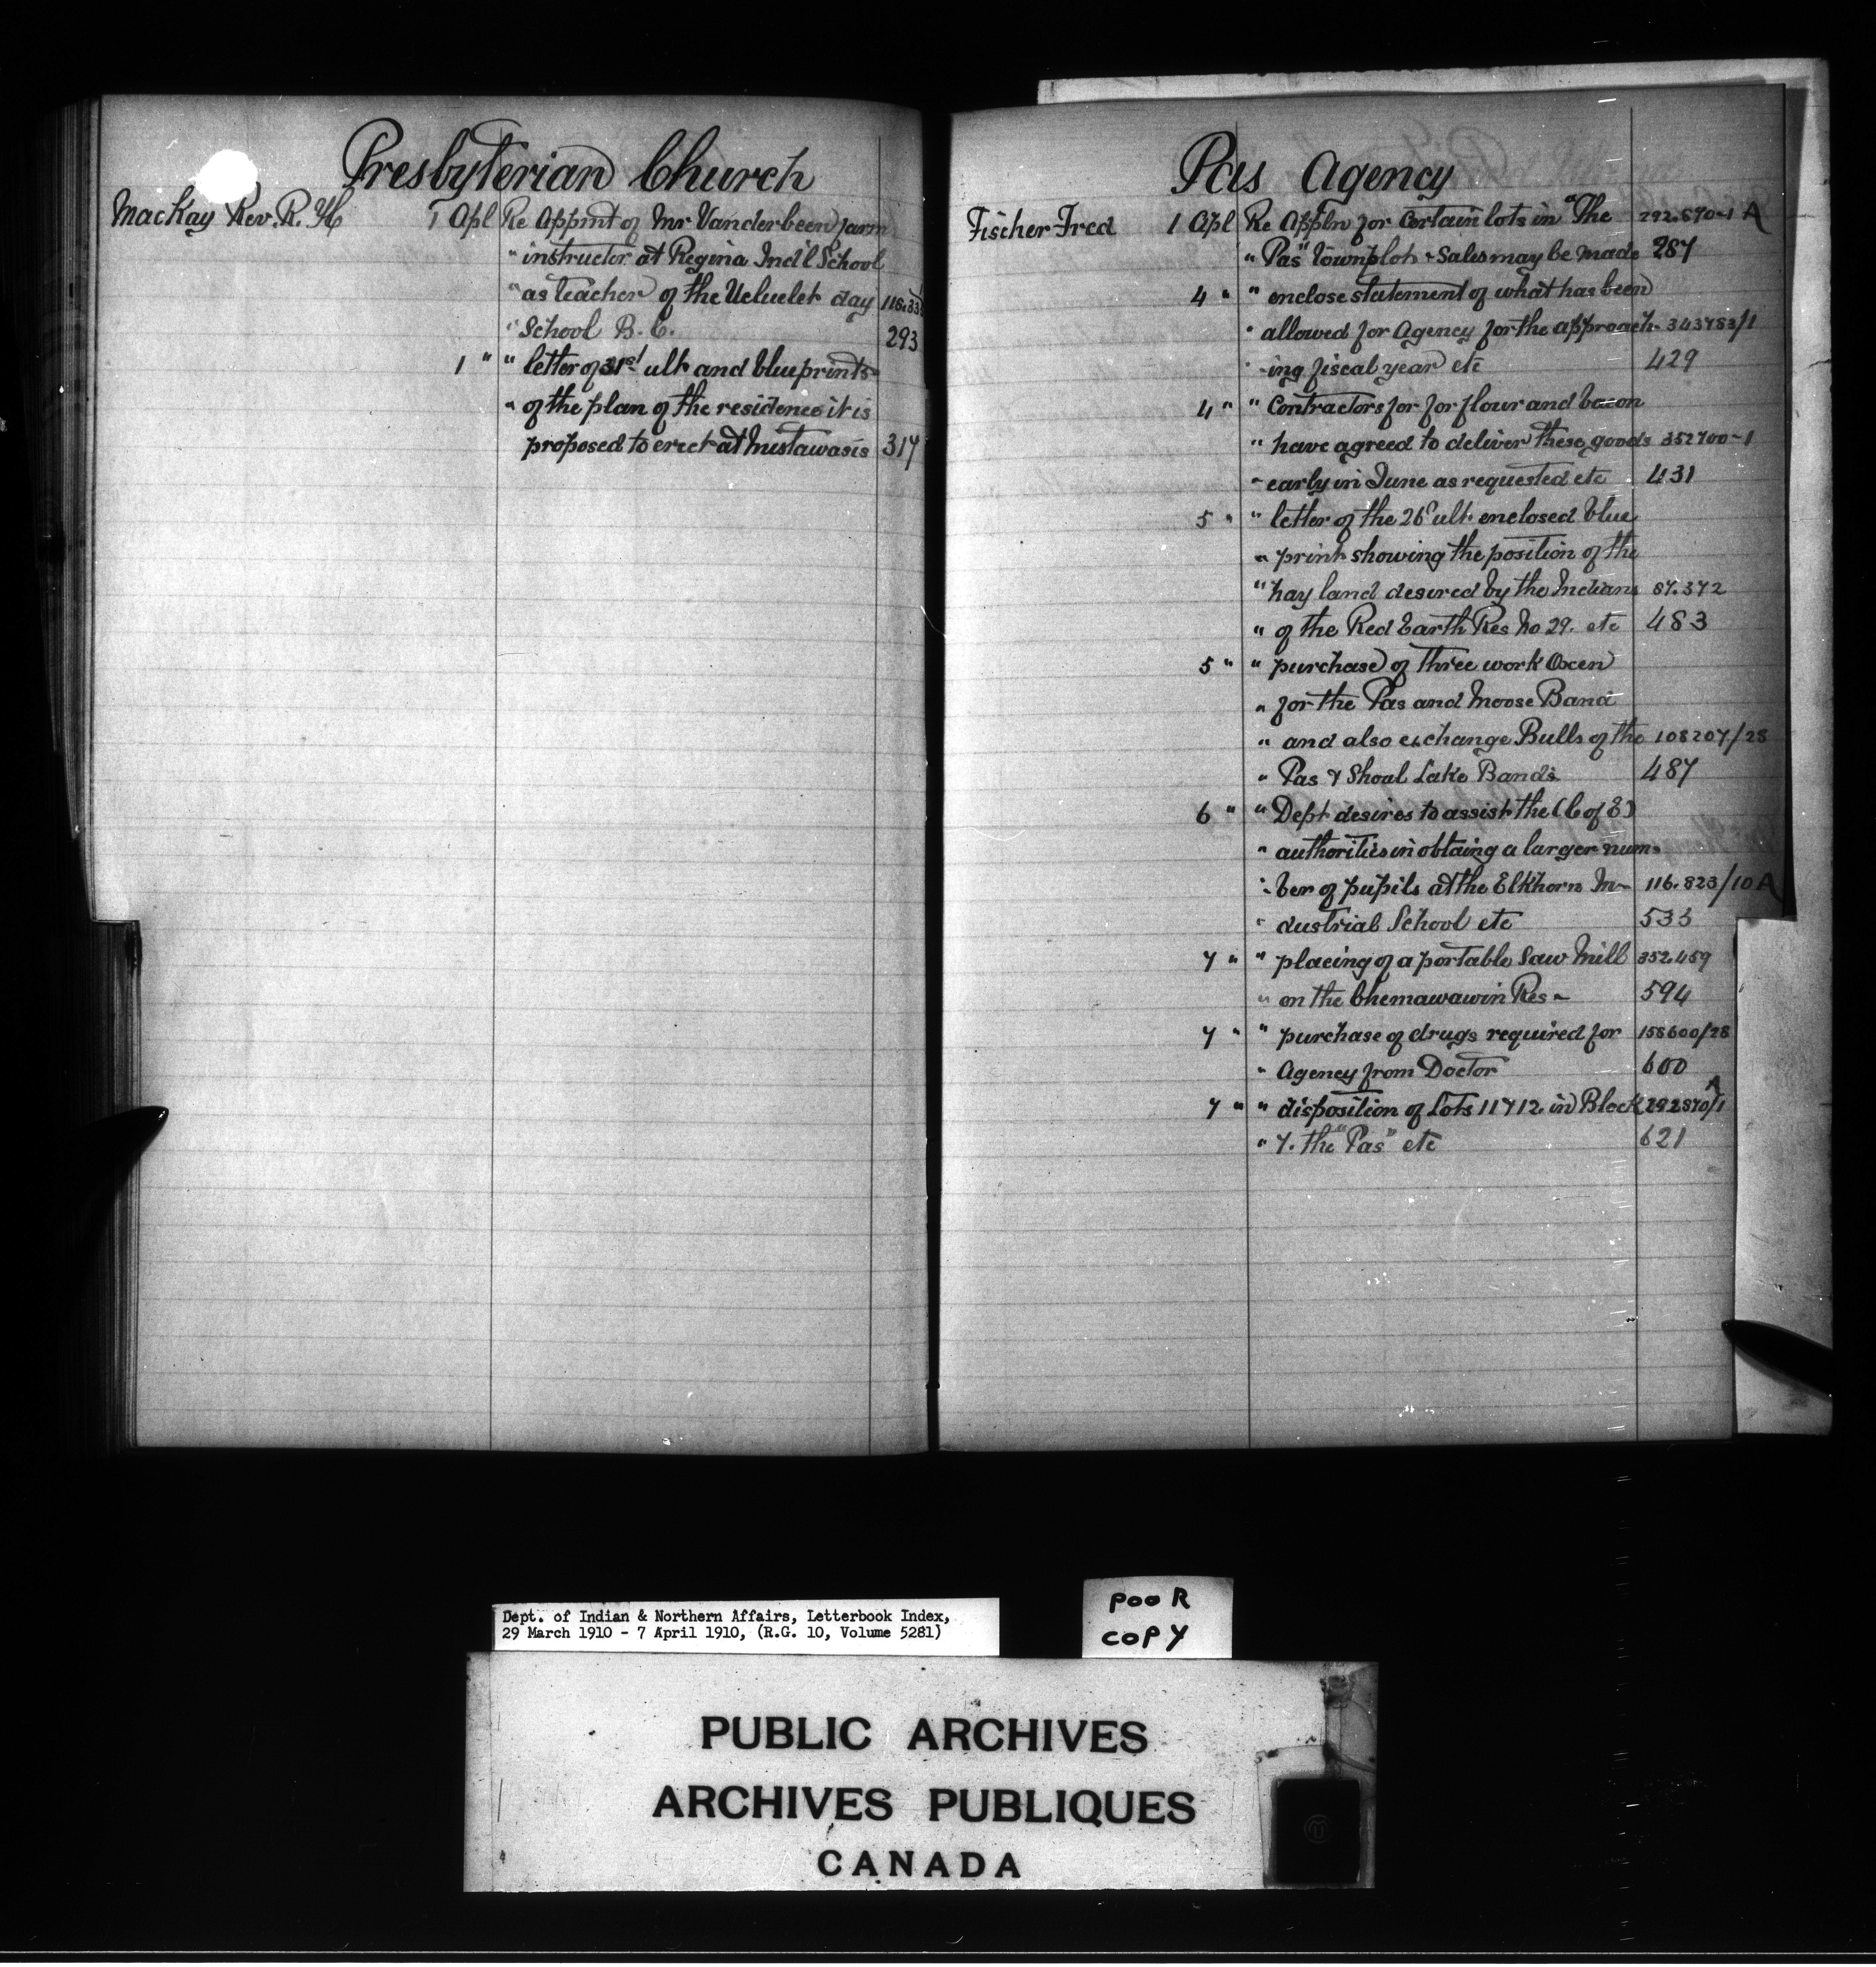 Presbyterian Church
MacKay Rev. R. H 1 Apl Re Appmt of Mr Vanderbeen farm
" instructor at Regina Ind'l School
" as teacher of the Ucluelet day 118.33
" School B. C. 293
1 " " letter of 31st ult and blueprints
" of the plan of the residence it is
proposed to erect at Mistawasis 317
Pas Agency
Fischer Fred 1 Apl Re Appln for Certain lots in "The 292.870-1 A
" Pas" Townplot & Sales may be made 287
4 " " enclose statement of what has been
" allowed for Agency for the approach- 343783/1
" -ing fiscal year etc 429
4 " " Contractors for for flour and bacon
" have agreed to deliver these goods 352700-1
" early in June as requested etc 431
5 " " letter of the 26 ult enclosed blue
" print showing the position of the
" hay land desired by the Indians 87.372
" of the Red Earth Res No 29. etc 483
5 " " purchase of three work Oxen
" for the Pas and Moose Band
" and also exchange Bulls of the 108207/28
" Pas & Shoal Lake Bands 487
6 " " Dept desires to assist the (C of E)
" authorities in obtaing a larger num-
:- ber of pupils at the Elkhorn In- 116.823/10 A
" dustrial School etc 533
7 " " placing of a portable Saw Mill 352.459
" on the Chemawawin Res - 594
7 " " purchase of drugs required for 158600/28
" Agency from Doctor 600
7 " " disposition of Lots 11 & 12 in Block 292870/1 A
" 7. the "Pas" etc 621
Dept. of Indian & Northern Affairs, Letterbook Index,
29 March 1910 - 7 April 1910, (R.G. 10, Volume 5281)
POOR
COPY
PUBLIC ARCHIVES
ARCHIVES PUBLIQUES
CANADA